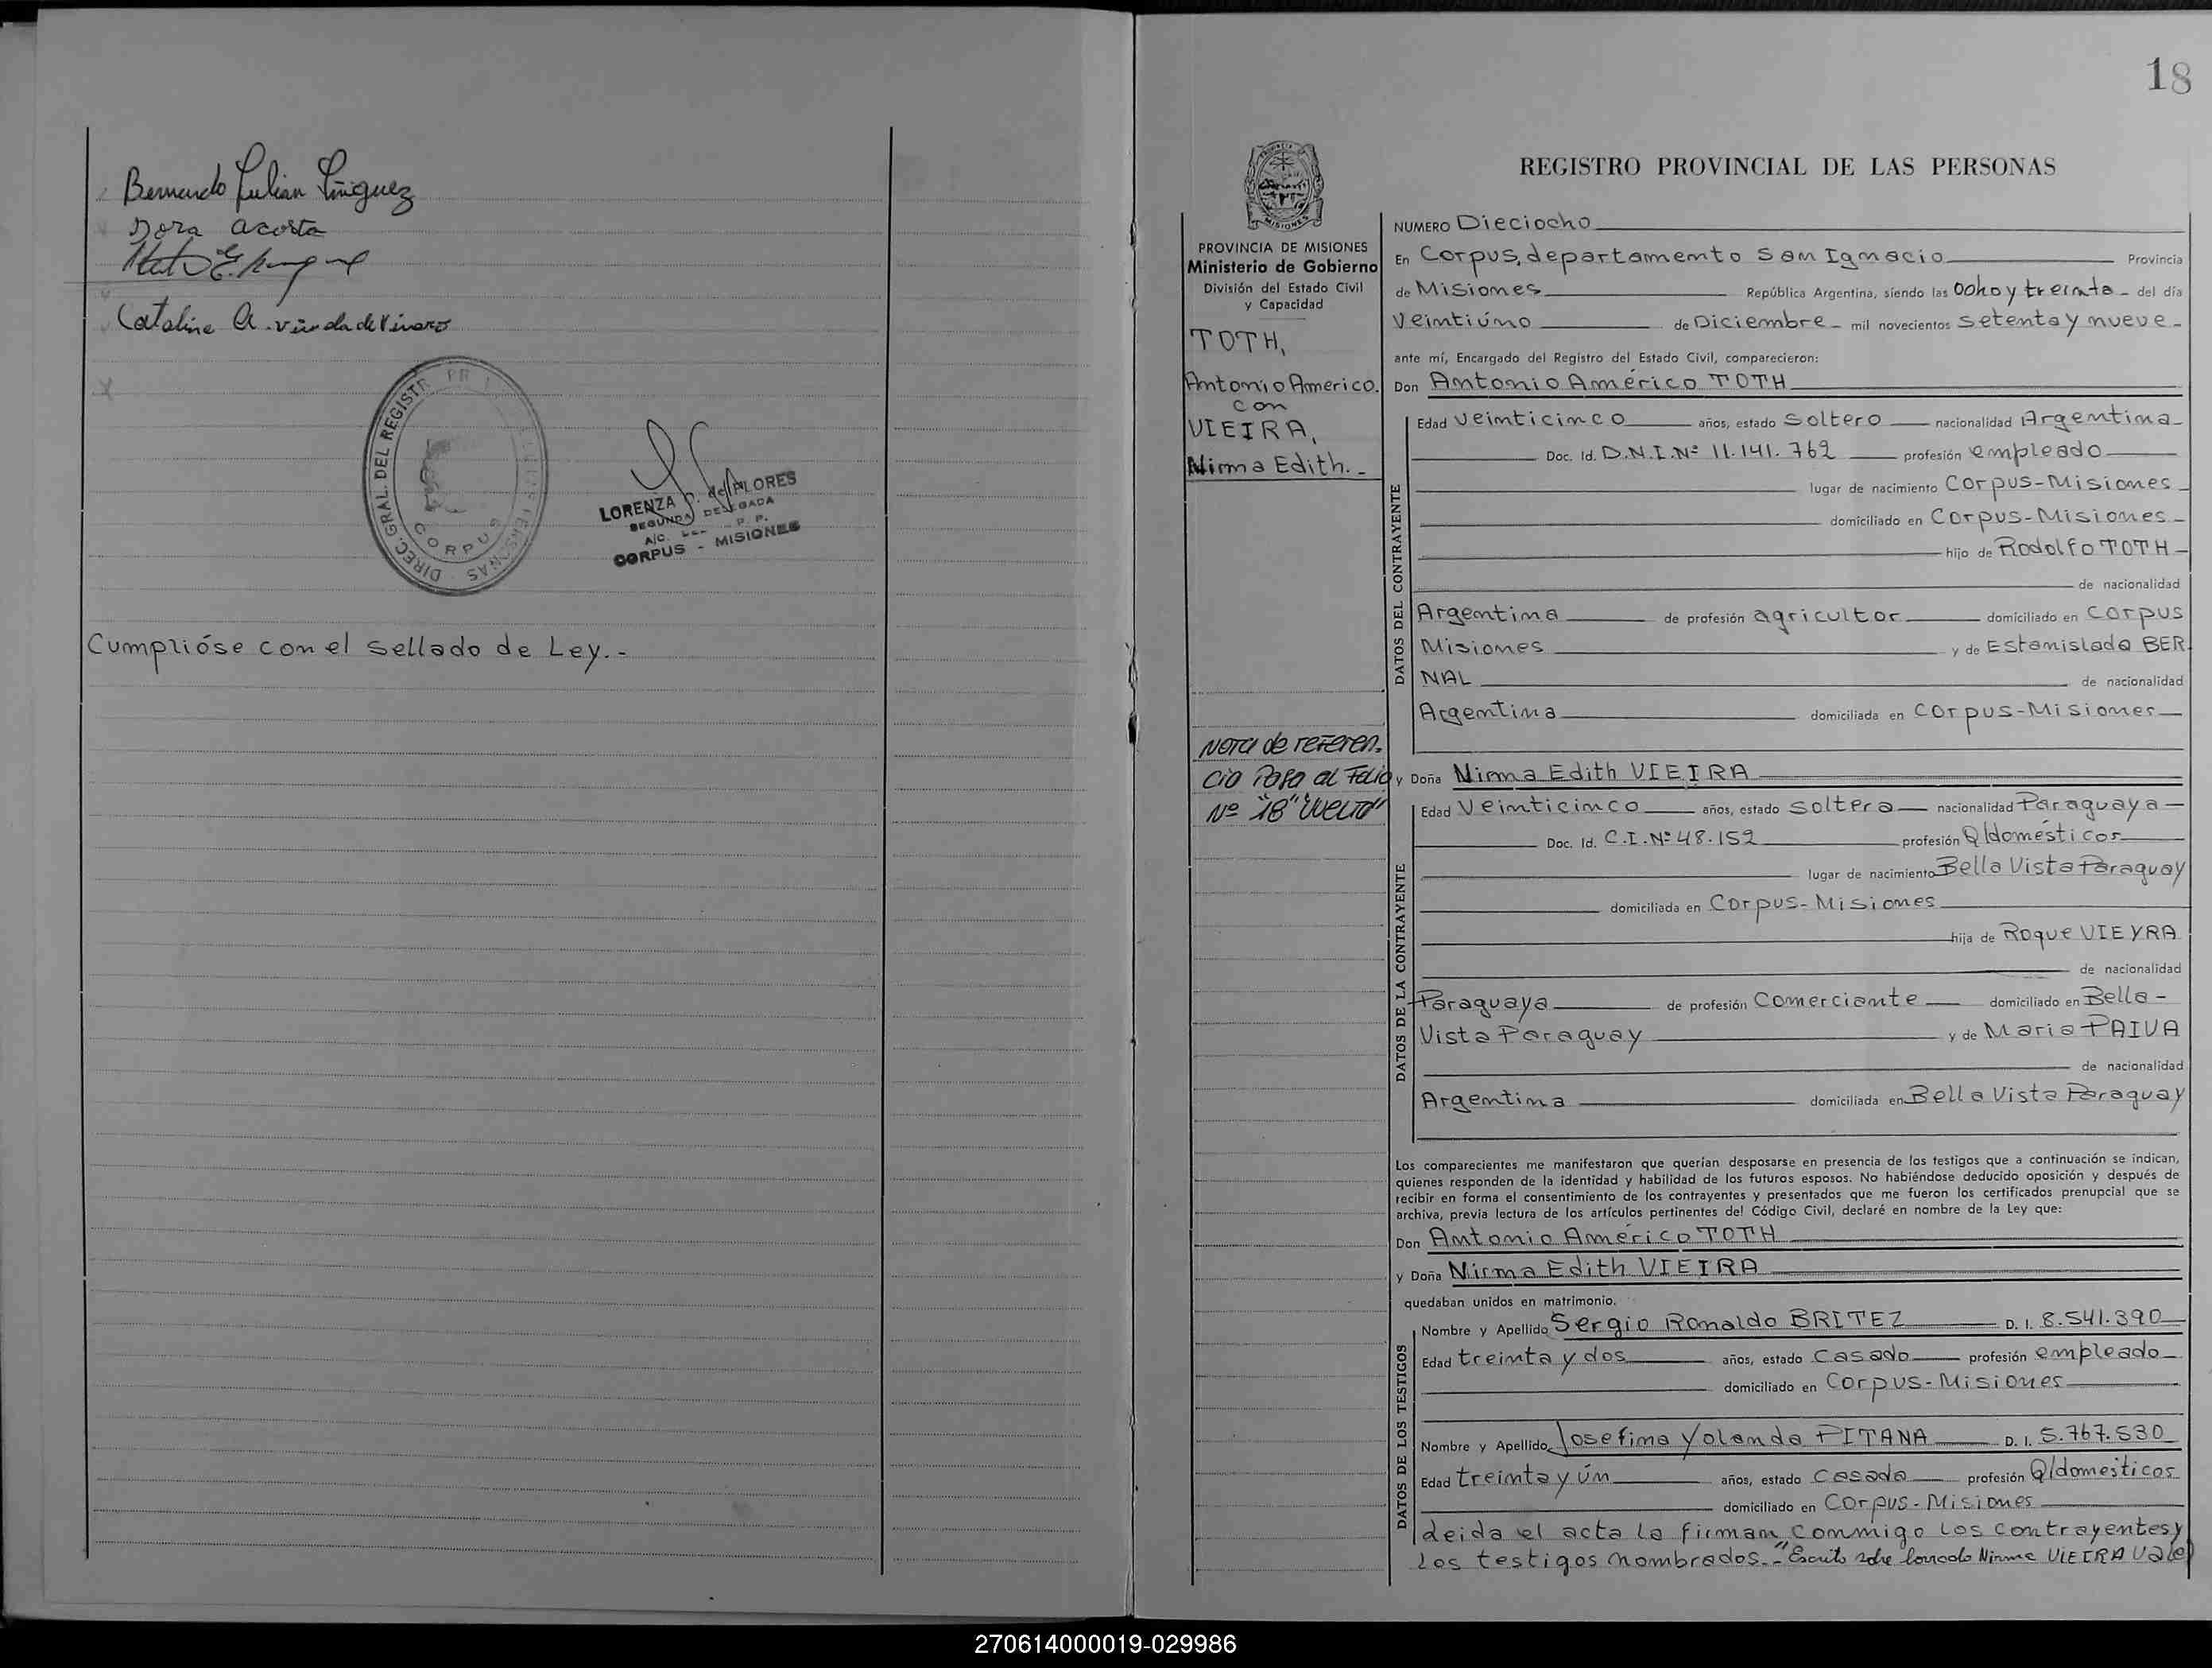 Bernardo Julian Iñiguez
Dora Acosta
Catalina A. viuda de
DIREC. GRAL. DEL REGISTR
CORPUS
LORENZA de FLORES
SEGUNDA DELEGADA
A/C.
CORPUS - MISIONES
Cumplióse con el sellado de Ley.-
18
REGISTRO PROVINCIAL DE LAS PERSONAS
MISIONES
PROVINCIA DE MISIONES
Ministerio de Gobierno
División del Estado Civil
y Capacidad
TOTH,
Antonio Americo.
con
VIEIRA,
Nirma Edith.-
Nota de referen-
cia Pasa al Folio
Nº "18" "vuelto"
NUMERO Dieciocho
En Corpus, departamento San Ignacio Provincia
de Misiones República Argentina, siendo las Ocho y treinta - del día
Veintiúno de Diciembre - mil novecientos setenta y nueve -
ante mí, Encargado del Registro del Estado Civil, comparecieron:
Don Antonio Américo TOTH
DATOS DEL CONTRAYENTE
Edad Veinticinco años, estado Soltero nacionalidad Argentina
Doc. Id. D.N.I.Nº 11.141.762 profesión empleado
lugar de nacimiento Corpus-Misiones
domiciliado en Corpus-Misiones
hijo de Rodolfo TOTH
de nacionalidad
Argentina de profesión agricultor domiciliado en Corpus
Misiones y de Estanislada BER
NAL de nacionalidad
Argentina domiciliada en Corpus-Misiones
y Doña Nirma Edith VIEIRA
DATOS DE LA CONTRAYENTE
Edad Veinticinco años, estado soltera nacionalidad Paraguaya
Doc. Id. C.I.Nº 48.152 profesión Q/domésticos
lugar de nacimiento Bella Vista Paraguay
domiciliada en Corpus-Misiones
hija de Roque VIEYRA
de nacionalidad
Paraguaya de profesión Comerciante domiciliado en Bella -
Vista Paraguay y de Maria PAIVA
de nacionalidad
Argentina domiciliada en Bella Vista Paraguay
Los comparecientes me manifestaron que querían desposarse en presencia de los testigos que a continuación se indican,
quienes responden de la identidad y habilidad de los futuros esposos. No habiéndose deducido oposición y después de
recibir en forma el consentimiento de los contrayentes y presentados que me fueron los certificados prenupcial que se
archiva, previa lectura de los artículos pertinentes del Código Civil, declaré en nombre de la Ley que:
Don Antonio Américo TOTH
y Doña Nirma Edith VIEIRA
quedaban unidos en matrimonio.
DATOS DE LOS TESTIGOS
Nombre y Apellido Sergio Ronaldo BRITEZ D. I. 8.541.390
Edad treinta y dos años, estado Casado profesión empleado
domiciliado en Corpus-Misiones
Nombre y Apellido Josefina Yolanda PITANA D. I. 5.767.530
Edad treinta y ún años, estado Casada profesión Q/domesticos
domiciliado en Corpus-Misiones
Leida el acta la firman conmigo los contrayentes y
los testigos nombrados.- "Escrito sobre borrado Nirma VIEIRA Vale
270614000019-029986